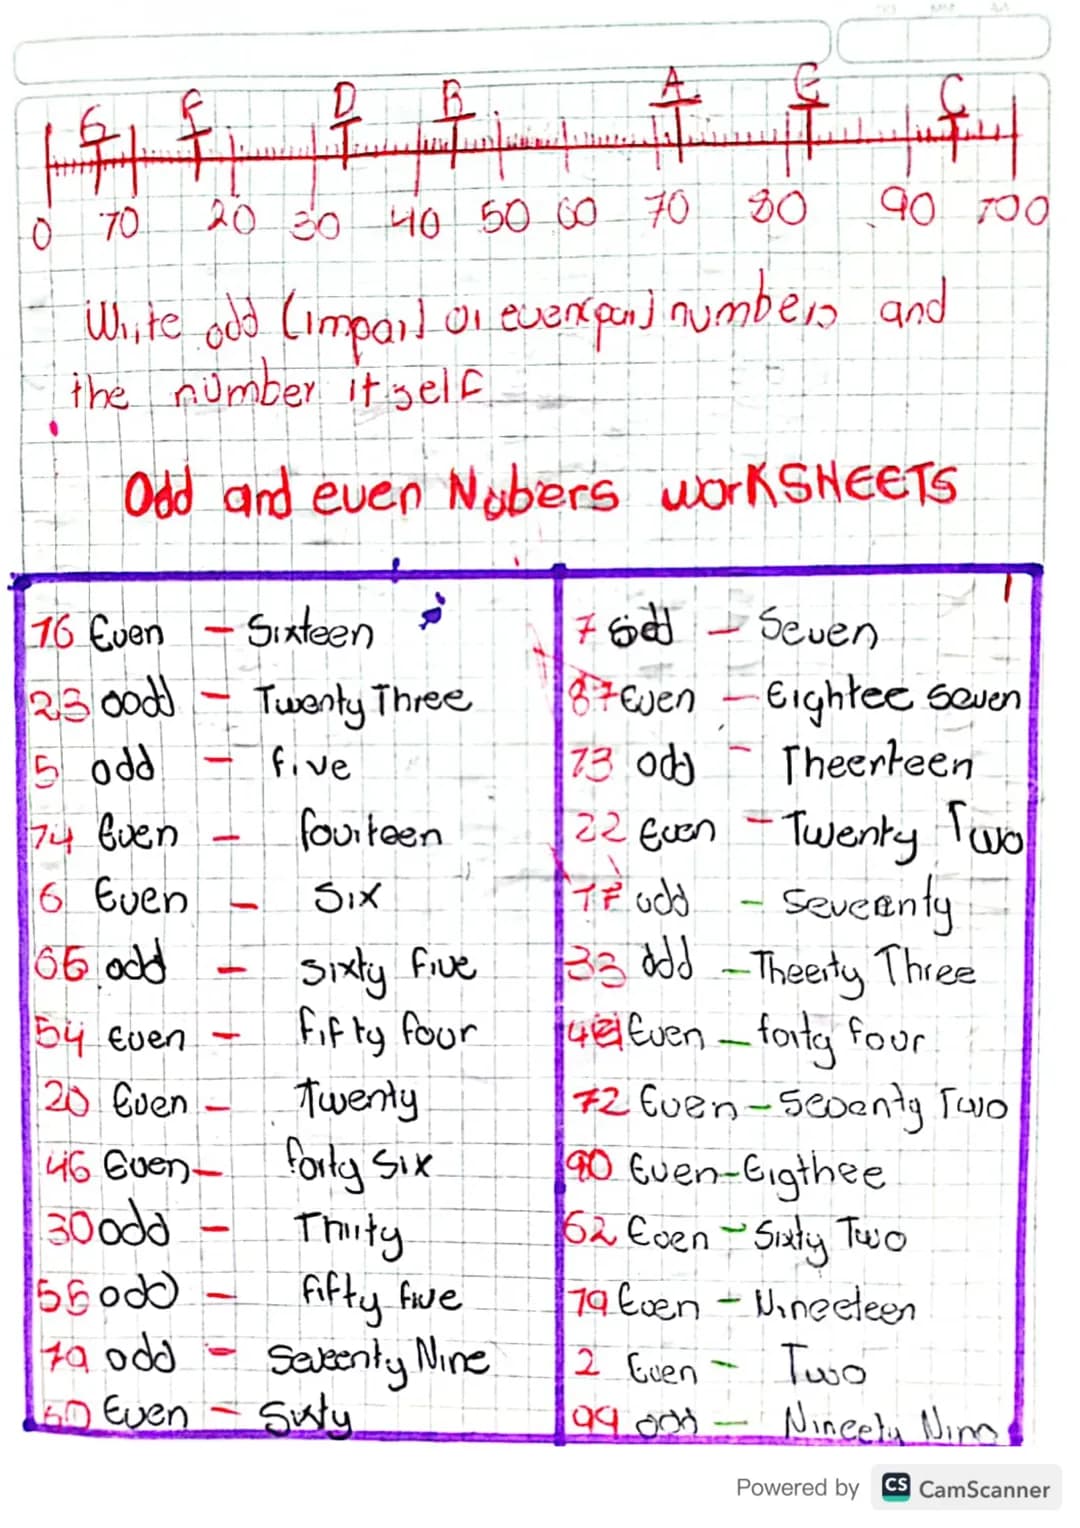 G F D B A E C
0 10 20 30 40 50 60 70 80 90 100
Write odd (impar) or even(par) numbers and
the number itself
Odd and even Nubers worKSHEETS
16 Even - Sixteen
23 oodd - Twenty Three
5 odd - five
14 Even - fourteen
6 Even - Six
65 odd - Sixty five
54 Even - fifty four
20 Even - Twenty
46 Even - forty Six
30 odd - Thirty
55 odd - fifty five
79 odd - Seventy Nine
60 Even - Sixty
7 odd - Seven
87 Even - Eightee Seven
13 odd - Theerteen
22 Even - Twenty Two
77 odd - Seventy
33 odd - Theerty Three
Even - forty four
72 Even - Seventy Two
Even - Eigthee
62 Even - Sixty Two
19 Even - Nineeteen
2 Even - Two
99 odd - Nineety Nine
Powered by CS CamScanner